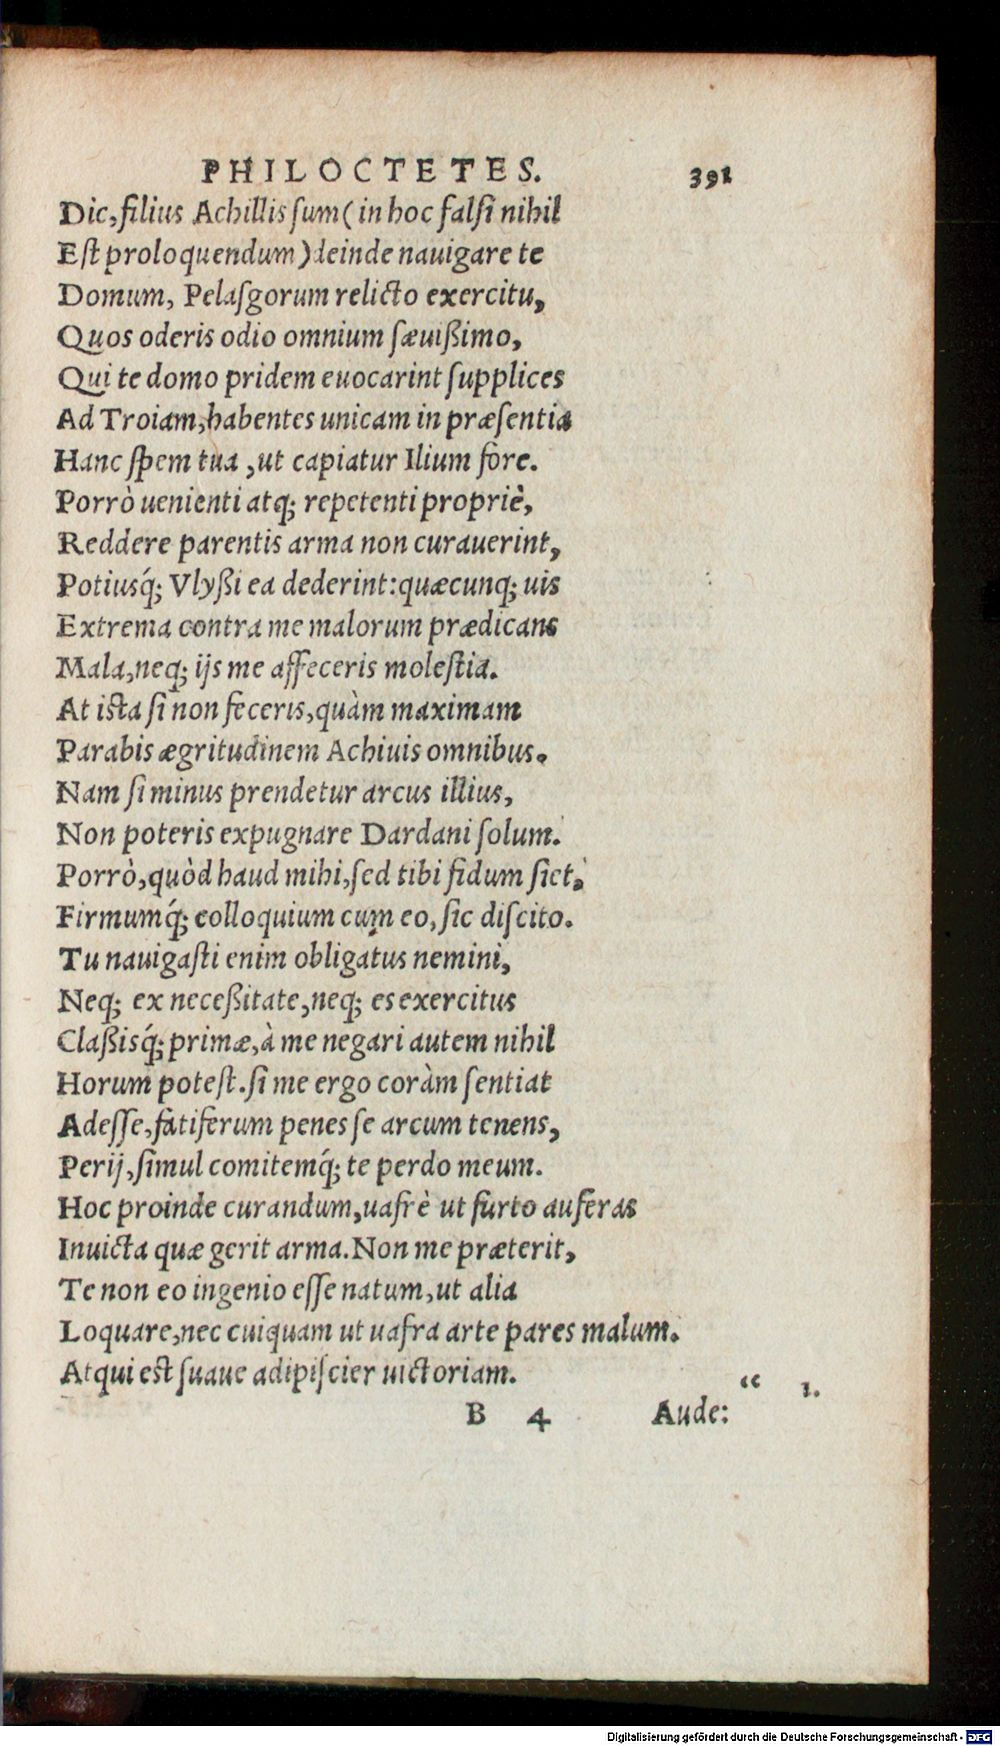 PHILOCTETES. 391
Dic, filius Achillis ſum (in hoc falſi nihil
Eſt proloquendum) deinde nauigare te
Domum, Pelaſgorum relicto exercitu,
Quos oderis odio omnium ſæuißimo,
Qui te domo pridem euocarint ſupplices
Ad Troiam, habentes unicam in præſentia
Hanc ſpem tua, ut capiatur Ilium fore.
Porrò uenienti atq; repetenti propriè,
Reddere parentis arma non curauerint,
Potiusq́; Vlyßi ea dederint: quæcunq; uis
Extrema contra me malorum prædicans
Mala, neq; ijs me affeceris moleſtia.
At iſta ſi non feceris, quàm maximam
Parabis ægritudinem Achiuis omnibus.
Nam ſi minus prendetur arcus illius,
Non poteris expugnare Dardani ſolum.
Porrò, quòd haud mihi, ſed tibi fidum ſiet,
Firmumq́; colloquium cum eo, ſic diſcito.
Tu nauigaſti enim obligatus nemini,
Neq; ex neceßitate, neq; es exercitus
Claßisq́; primæ, à me negari autem nihil
Horum poteſt. ſi me ergo coràm ſentiat
Adeſſe, fatiferum penes ſe arcum tenens,
Perij, ſimul comitemq́; te perdo meum.
Hoc proinde curandum, uafrè ut furto auferas
Inuicta quæ gerit arma. Non me præterit,
Te non eo ingenio eſſe natum, ut alia
Loquare, nec cuiquam ut uafra arte pares malum.
Atqui eſt ſuaue adipiſcier uictoriam. “ 1.
B 4 Aude:
Digitalisierung gefördert durch die Deutsche Forschungsgemeinschaft - DFG